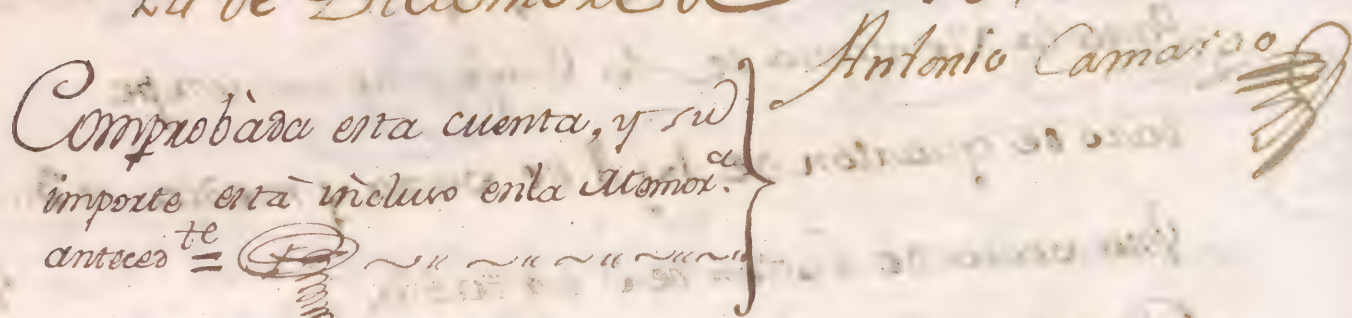 24 de Diciembre de
Antonio Camargo
Comprobàda esta cuenta, y su
importe està incluso enla Memor.a
anteced te =